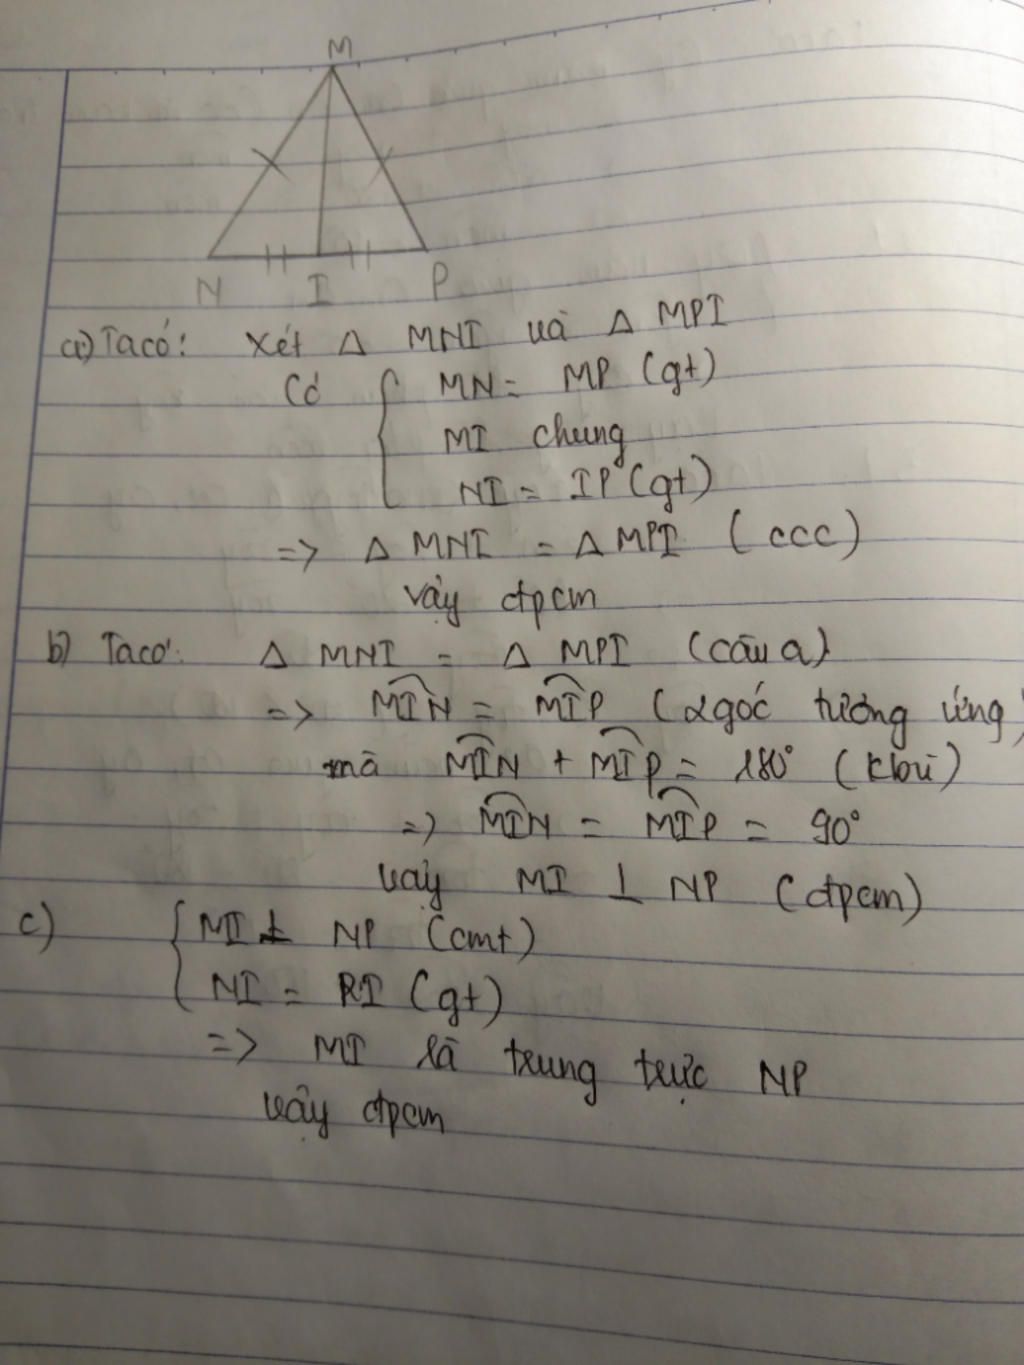 M
N I P
a) Ta có: Xét Δ MNI và Δ MPI
Có { MN = MP (gt)
MI chung
NI = IP (gt)
=> Δ MNI = Δ MPI (ccc)
vậy đpcm
b) Ta có: Δ MNI = Δ MPI (câu a)
=> MIN = MIP (2 góc tương ứng)
mà MIN + MIP = 180° (kbù)
=> MIN = MIP = 90°
vậy MI ⊥ NP (đpcm)
c) { MI ⊥ NP (cmt)
NI = PI (gt)
=> MI là trung trực NP
vậy đpcm